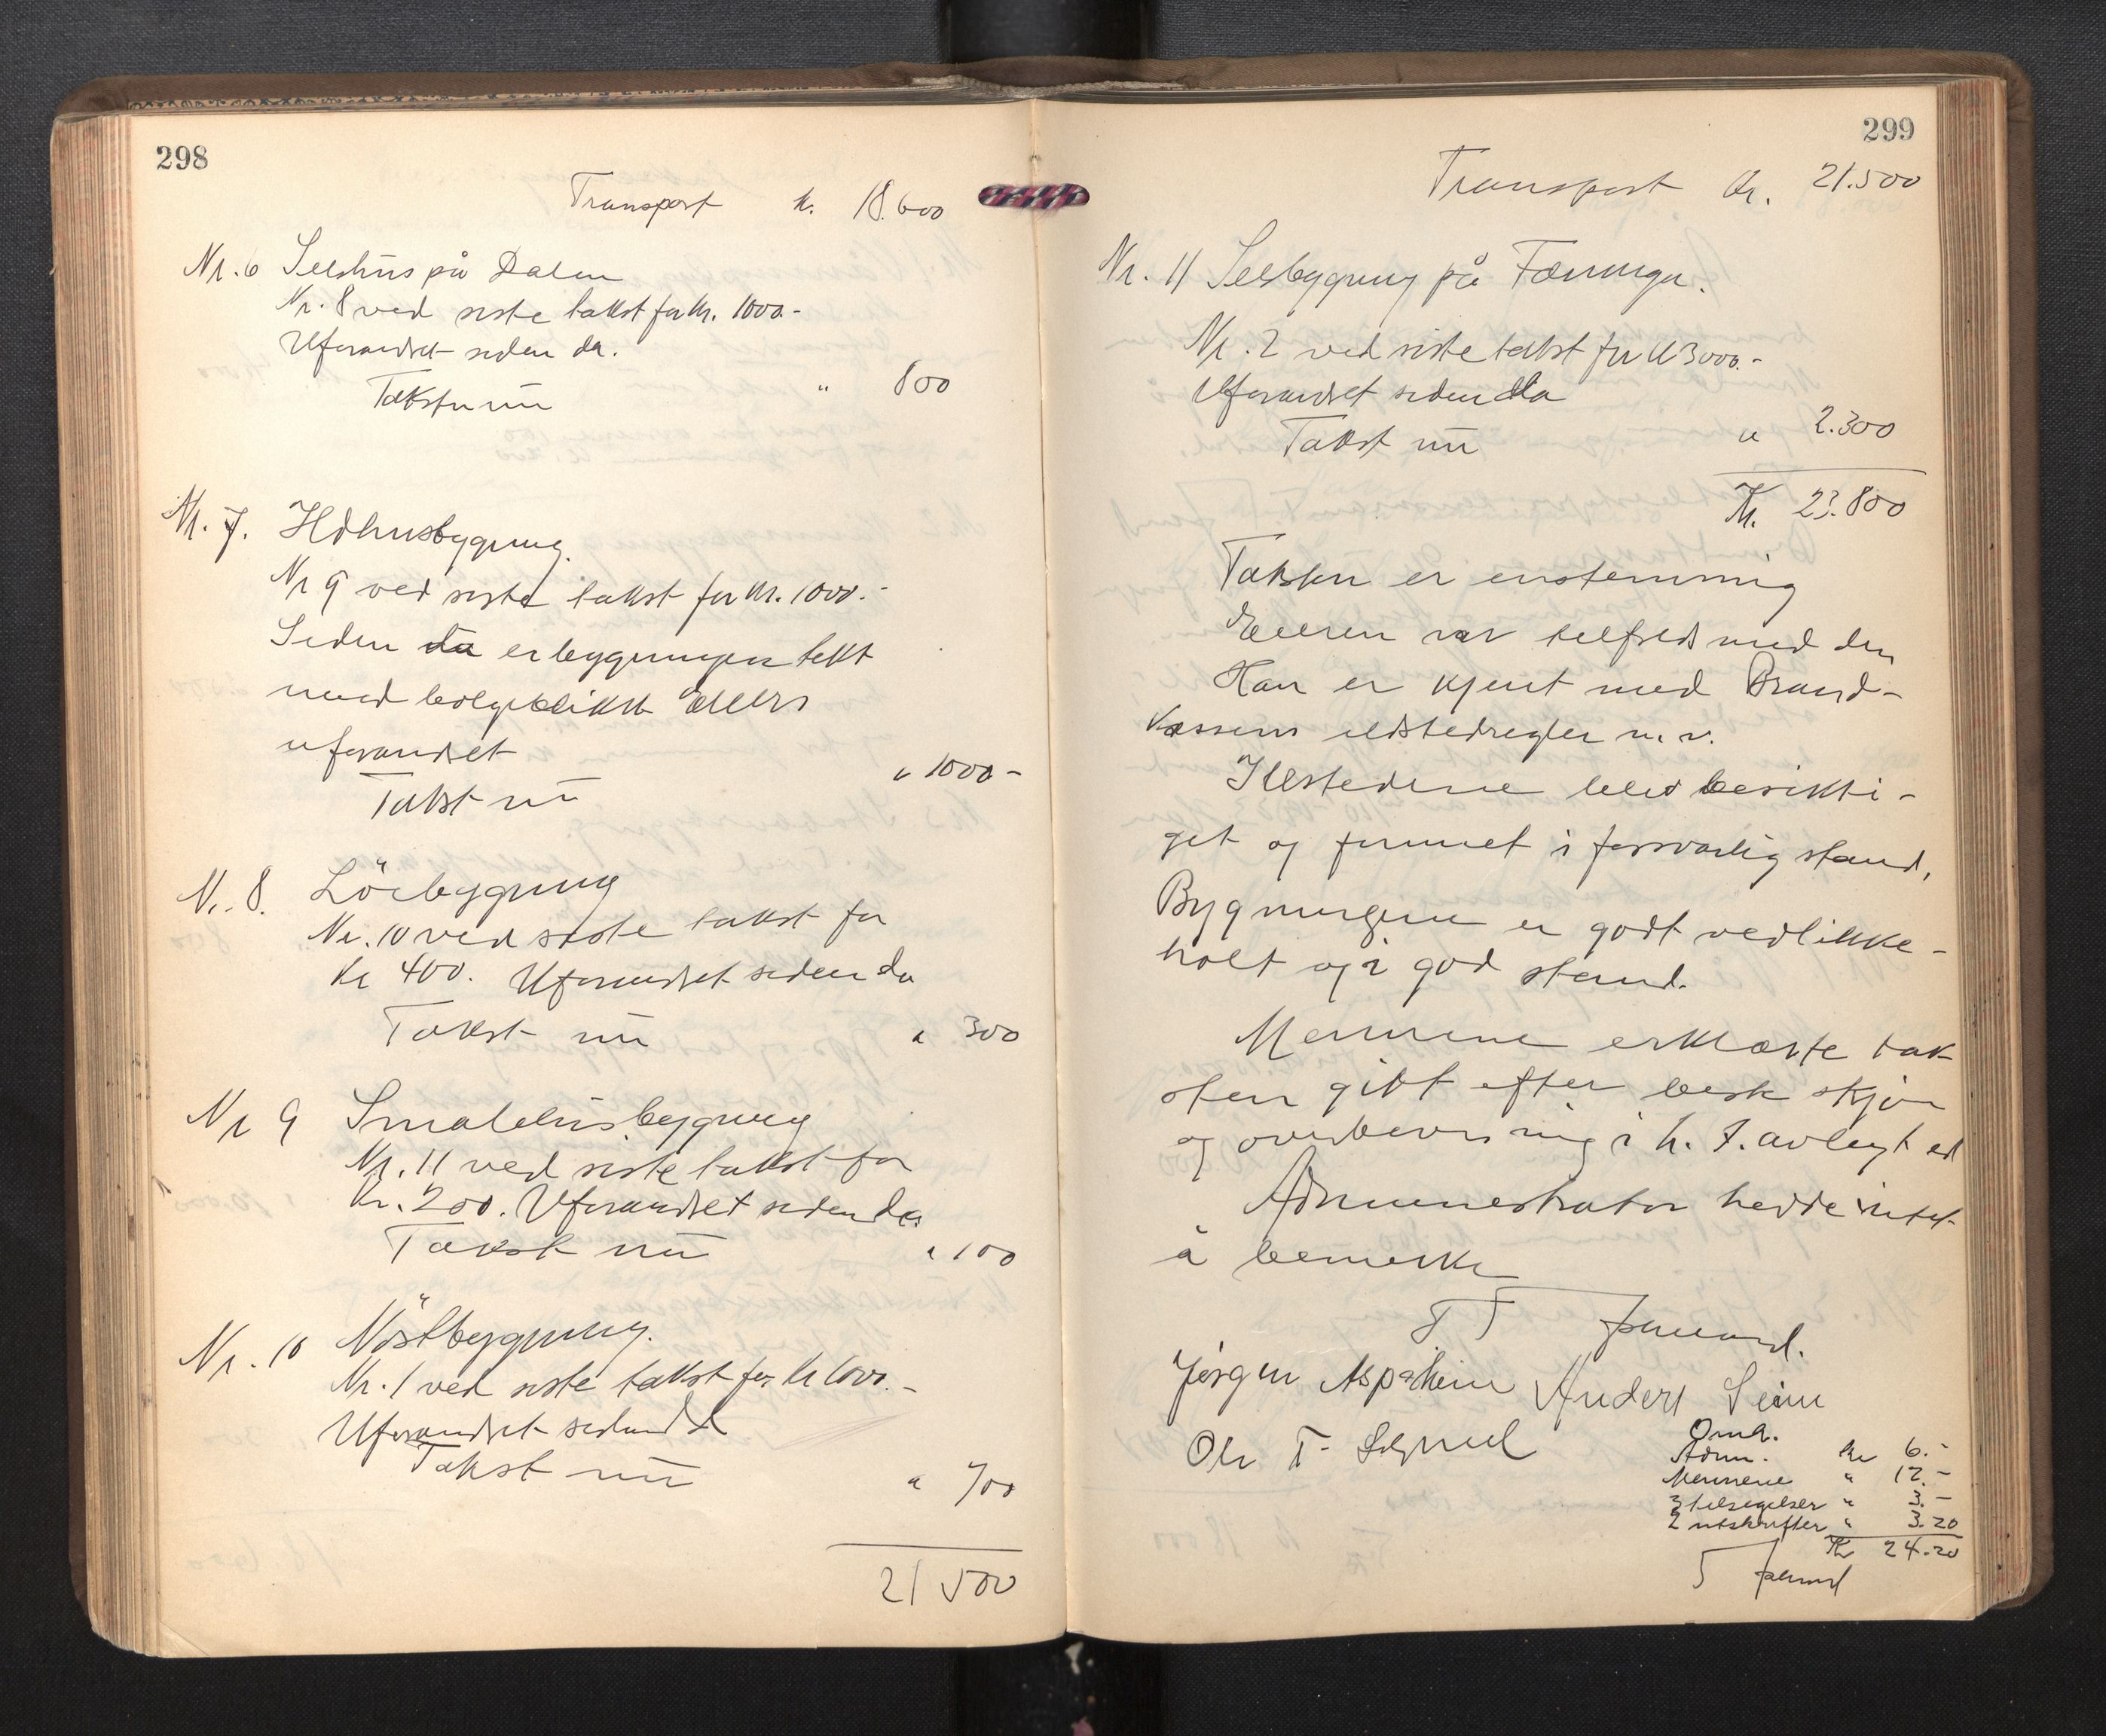 298
Transport k. 18.600
Nr. 6 Selshus på Dalen
Nr. 8 ved siste takst for kr. 1000.-
Uforandret siden da.
Taksten nu " 800
Nr. 7. Ildhusbygning.
Nr 9 ved siste takst for kr. 1000.-
Siden da er bygningen tekt
med bølgeblikk ellers
uforandret
Takst nu " 1000-
Nr. 8. Löebygning
Nr. 10 ved siste takst for
kr 400. Uforandret siden da
Takst nu " 300
Nr 9 Smalehusbygning
Nr. 11 ved siste takst for
kr. 200. Uforandret siden da
Takst nu " 100
Nr. 10 Nöstbygning.
Nr. 1 ved siste takst for kr 1000.-
Uforandret siden d
Takst nu " 700
21 500
299
Transport kr. 21.500
Nr. 11 Selsbygning på
Nr. 2 ved siste takst for k 3000.-
Uforandret siden da
Takst nu " 2.300
Kr. 23.800
Taksten er enstemmig
Eieren var tilfreds med den
Han er kjent med Brand-
kassens ildstedregler m. v.
Ildstedene blev besikti-
get og funnet i forsvarlig stand.
Bygningene er godt vedlikke-
holt og i god stand.
Mennene erklærte tak
sten gitt efter besk skjøn
og overbevisning i h. t. avlagt ed
Administrator hadde intet
å bemerke
Jørgen Aspeheim Anders Seim
Ole T.
Omk.
Adm. kr 6.-
Mennene " 12.-
3 tilsigelser " 3.-
2 utskrifter " 3.20
Kr 24.20